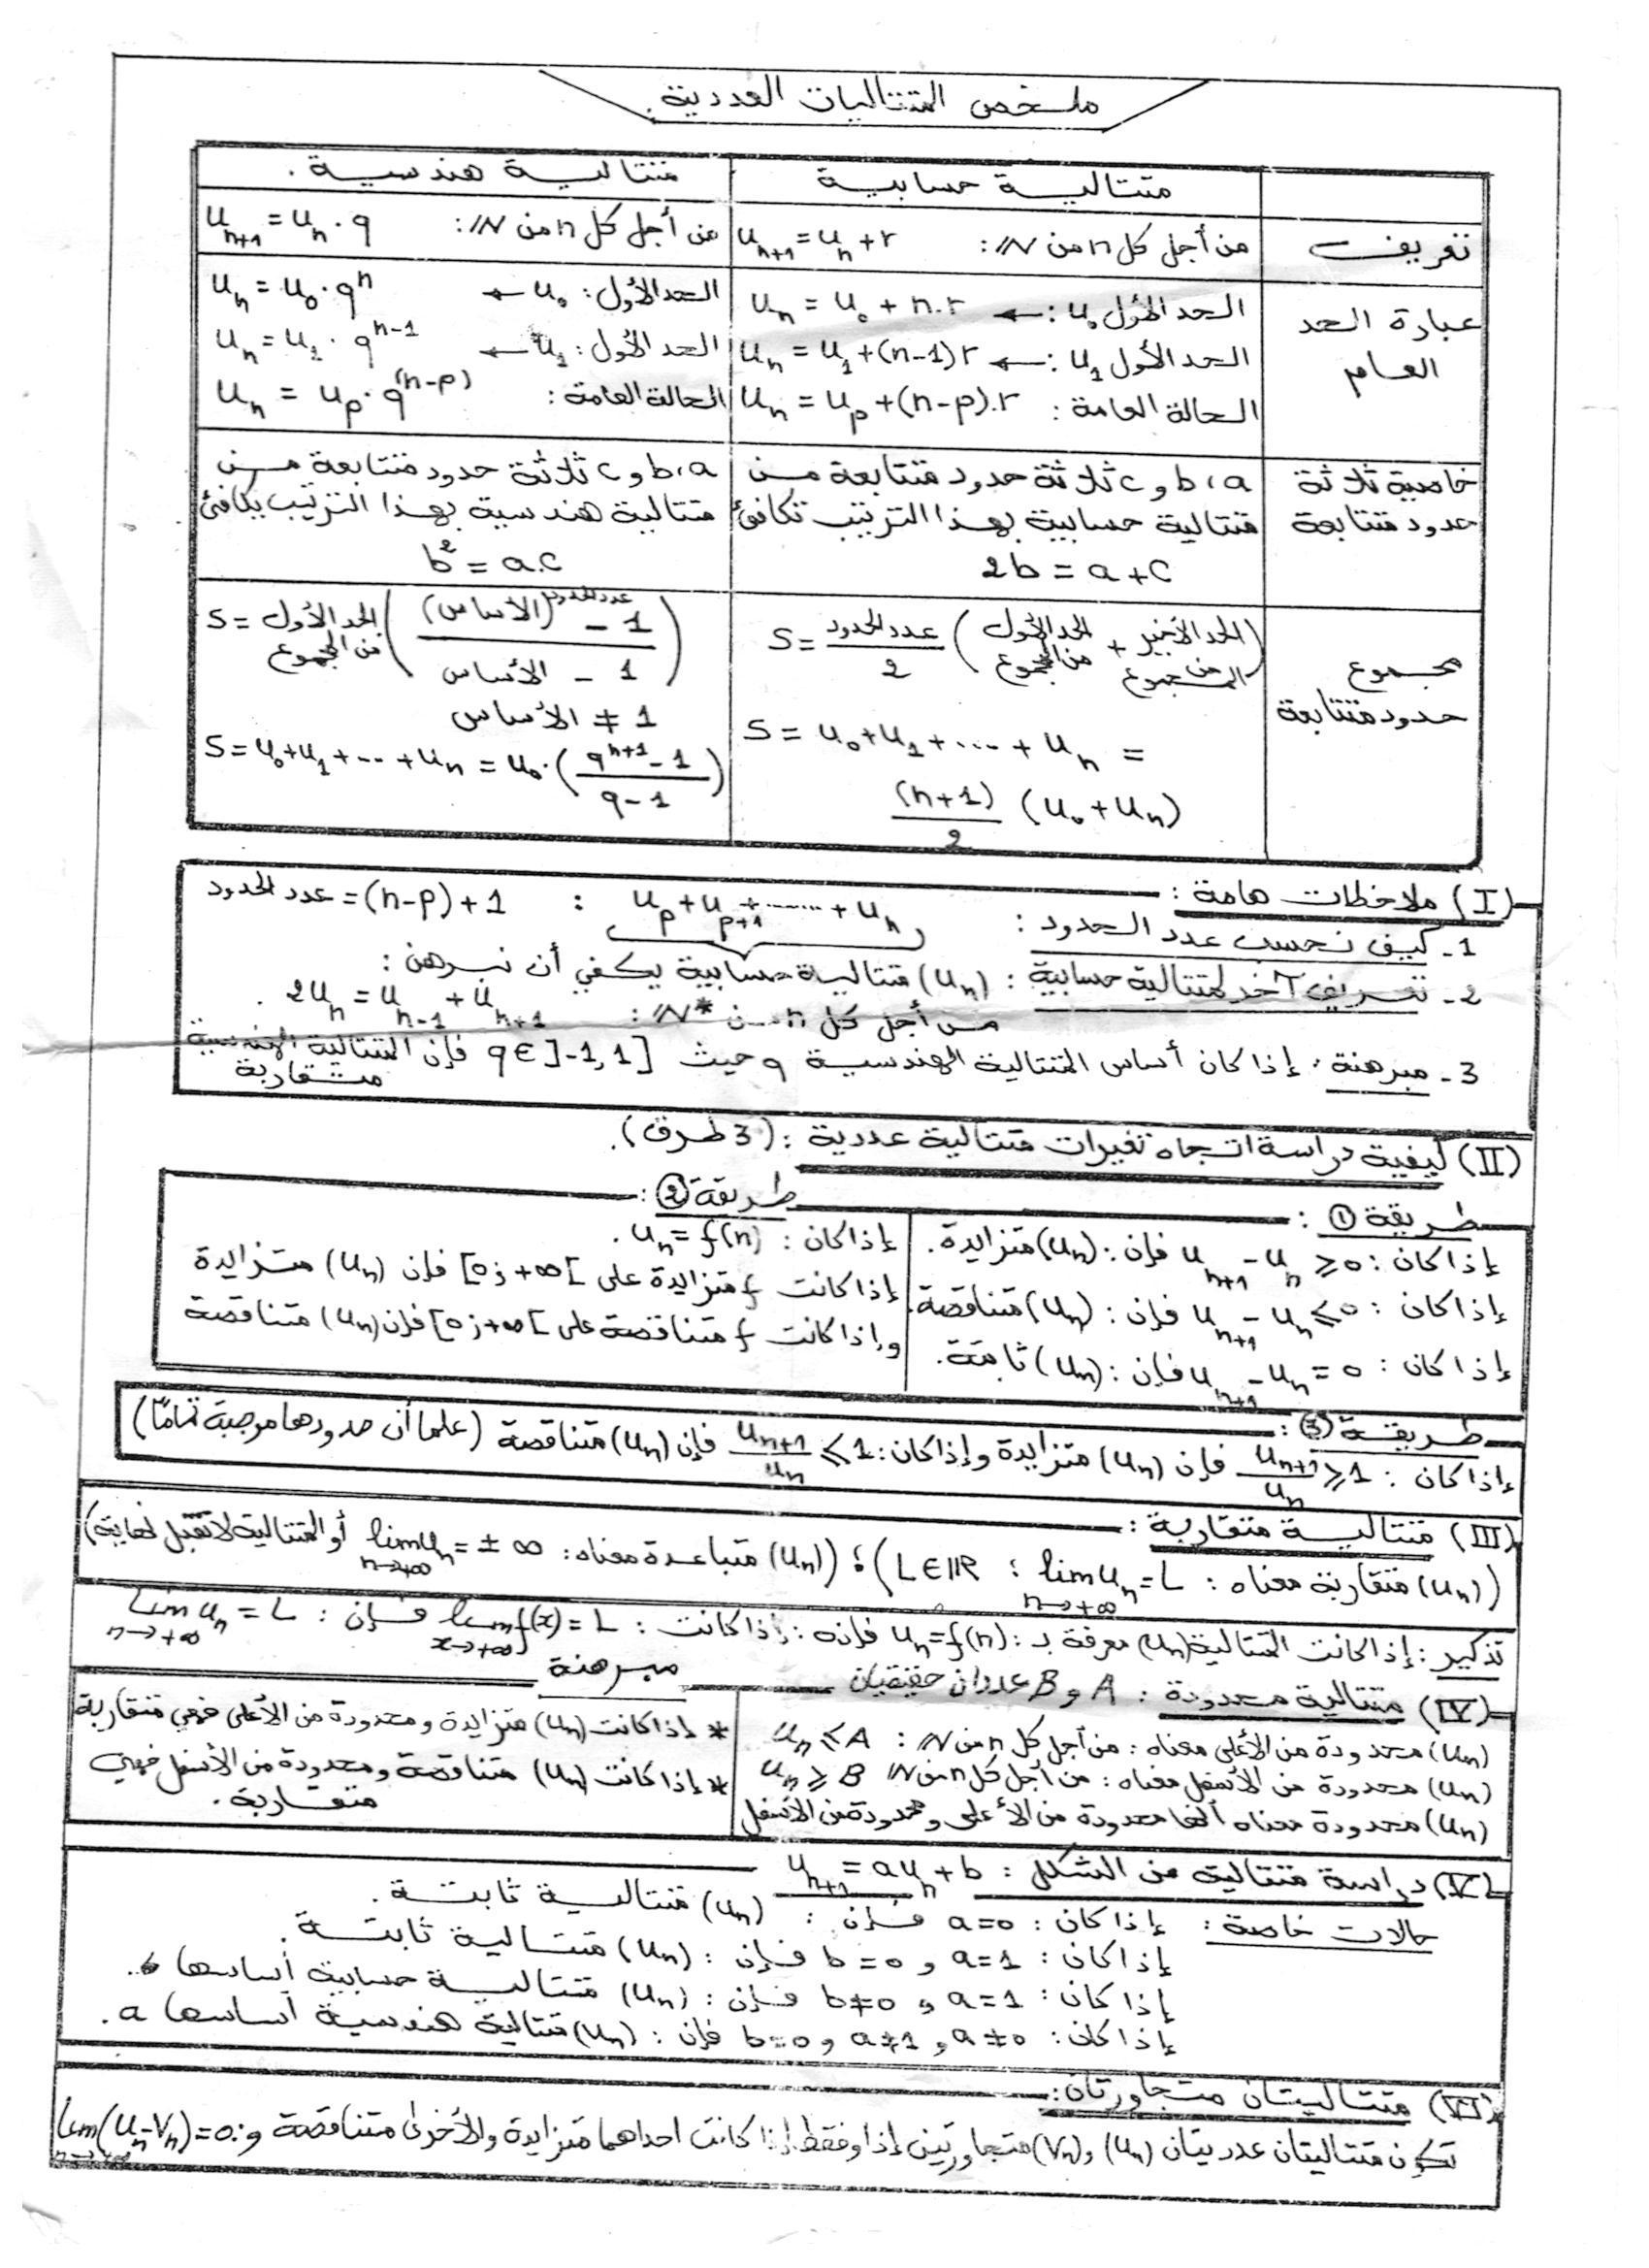 ملخص المتتاليات العددية.
متتالية حسابية
متتالية هندسية.
تعريف
من أجل كل n من ℕ: uₙ₊₁ = uₙ + r
من أجل كل n من ℕ: uₙ₊₁ = uₙ . q
عبارة الحد
العام
الحد الأول u₀: ← uₙ = u₀ + n.r
الحد الأول u₁: ← uₙ = u₁ + (n-1)r
الحالة العامة: uₙ = uₚ + (n-p).r
الحد الأول: u₀ ← uₙ = u₀ . qⁿ
الحد الأول: u₁ ← uₙ = u₁ . qⁿ⁻¹
الحالة العامة: uₙ = uₚ . q⁽ⁿ⁻ᵖ⁾
خاصية ثلاثة
حدود متتابعة
b،a و c ثلاثة حدود متتابعة من
متتالية حسابية بهذا الترتيب تكافئ
2b = a + c
b،a و c ثلاثة حدود متتابعة من
متتالية هندسية بهذا الترتيب يكافئ
b² = a.c
مجموع
حدود متتابعة
S = عدد الحدود / 2 (الحد الأول من المجموع + الحد الأخير من المجموع)
S = u₀ + u₁ + ... + uₙ =
(n+1)/2 (u₀ + uₙ)
S = الحد الأول من المجموع ((1 - (الأساس)^عدد الحدود) / (1 - الأساس))
1 ≠ الأساس
S = u₀ + u₁ + ... + uₙ = u₀ . ((qⁿ⁺¹ - 1)/(q - 1))
I) ملاحظات هامة:
1- كيف نحسب عدد الحدود: uₚ + uₚ₊₁ + ...... + uₙ : عدد الحدود = (n-p)+1
2- تعريف آخر لمتتالية حسابية: (uₙ) متتالية حسابية يكفي أن نبرهن:
من أجل كل n من ℕ*: 2uₙ = uₙ₋₁ + uₙ₊₁.
3- مبرهنة: إذا كان أساس المتتالية الهندسية q حيث q ∈ ]-1,1[ فإن المتتالية الهندسية
متقاربة
II) كيفية دراسة اتجاه تغيرات متتالية عددية: (3 طرق).
طريقة ①:
إذا كان: uₙ₊₁ - uₙ ≥ 0 فإن: (uₙ) متزايدة.
إذا كان: uₙ₊₁ - uₙ ≤ 0 فإن: (uₙ) متناقصة.
إذا كان: uₙ₊₁ - uₙ = 0 فإن: (uₙ) ثابتة.
طريقة ②:
إذا كان: uₙ = f(n).
إذا كانت f متزايدة على [0 ; +∞[ فإن (uₙ) متزايدة
وإذا كانت f متناقصة على [0 ; +∞[ فإن (uₙ) متناقصة
طريقة ③:
إذا كان: uₙ₊₁/uₙ ≥ 1 فإن (uₙ) متزايدة وإذا كان: uₙ₊₁/uₙ ≤ 1 فإن (uₙ) متناقصة (علما أن حدودها موجبة تماما)
III) متتالية متقاربة:
((uₙ) متقاربة معناه: lim uₙ = L n→+∞ ; L∈ℝ) ; ((uₙ) متباعدة معناه: lim uₙ = ±∞ n→+∞ أو المتتالية لا تقبل نهاية)
تذكير: إذا كانت المتتالية (uₙ) معرفة بـ: uₙ = f(n) فإنه: إذا كانت: lim f(x) = L x→+∞ فإن: lim uₙ = L n→+∞
IV) متتالية محدودة: A و B عددان حقيقيان
(uₙ) محدودة من الأعلى معناه: من أجل كل n من ℕ: uₙ ≤ A
(uₙ) محدودة من الأسفل معناه: من أجل كل n من ℕ uₙ ≥ B
(uₙ) محدودة معناه أنها محدودة من الأعلى ومحدودة من الأسفل
مبرهنة
* إذا كانت (uₙ) متزايدة ومحدودة من الأعلى فهي متقاربة
* إذا كانت (uₙ) متناقصة ومحدودة من الأسفل فهي
متقاربة.
V) دراسة متتالية من الشكل: uₙ₊₁ = auₙ + b
حالات خاصة: إذا كان: a=0 فإن: (uₙ) متتالية ثابتة.
إذا كان: a=1 و b=0 فإن: (uₙ) متتالية ثابتة.
إذا كان: a=1 و b≠0 فإن: (uₙ) متتالية حسابية أساسها b.
إذا كان: a≠0 و a≠1 و b=0 فإن: (uₙ) متتالية هندسية أساسها a.
VI) متتاليتان متجاورتان:
تكون متتاليتان عدديتان (uₙ) و (vₙ) متجاورتين إذا وفقط إذا كانت احداهما متزايدة والأخرى متناقصة و: lim(uₙ - vₙ) = 0 n→+∞